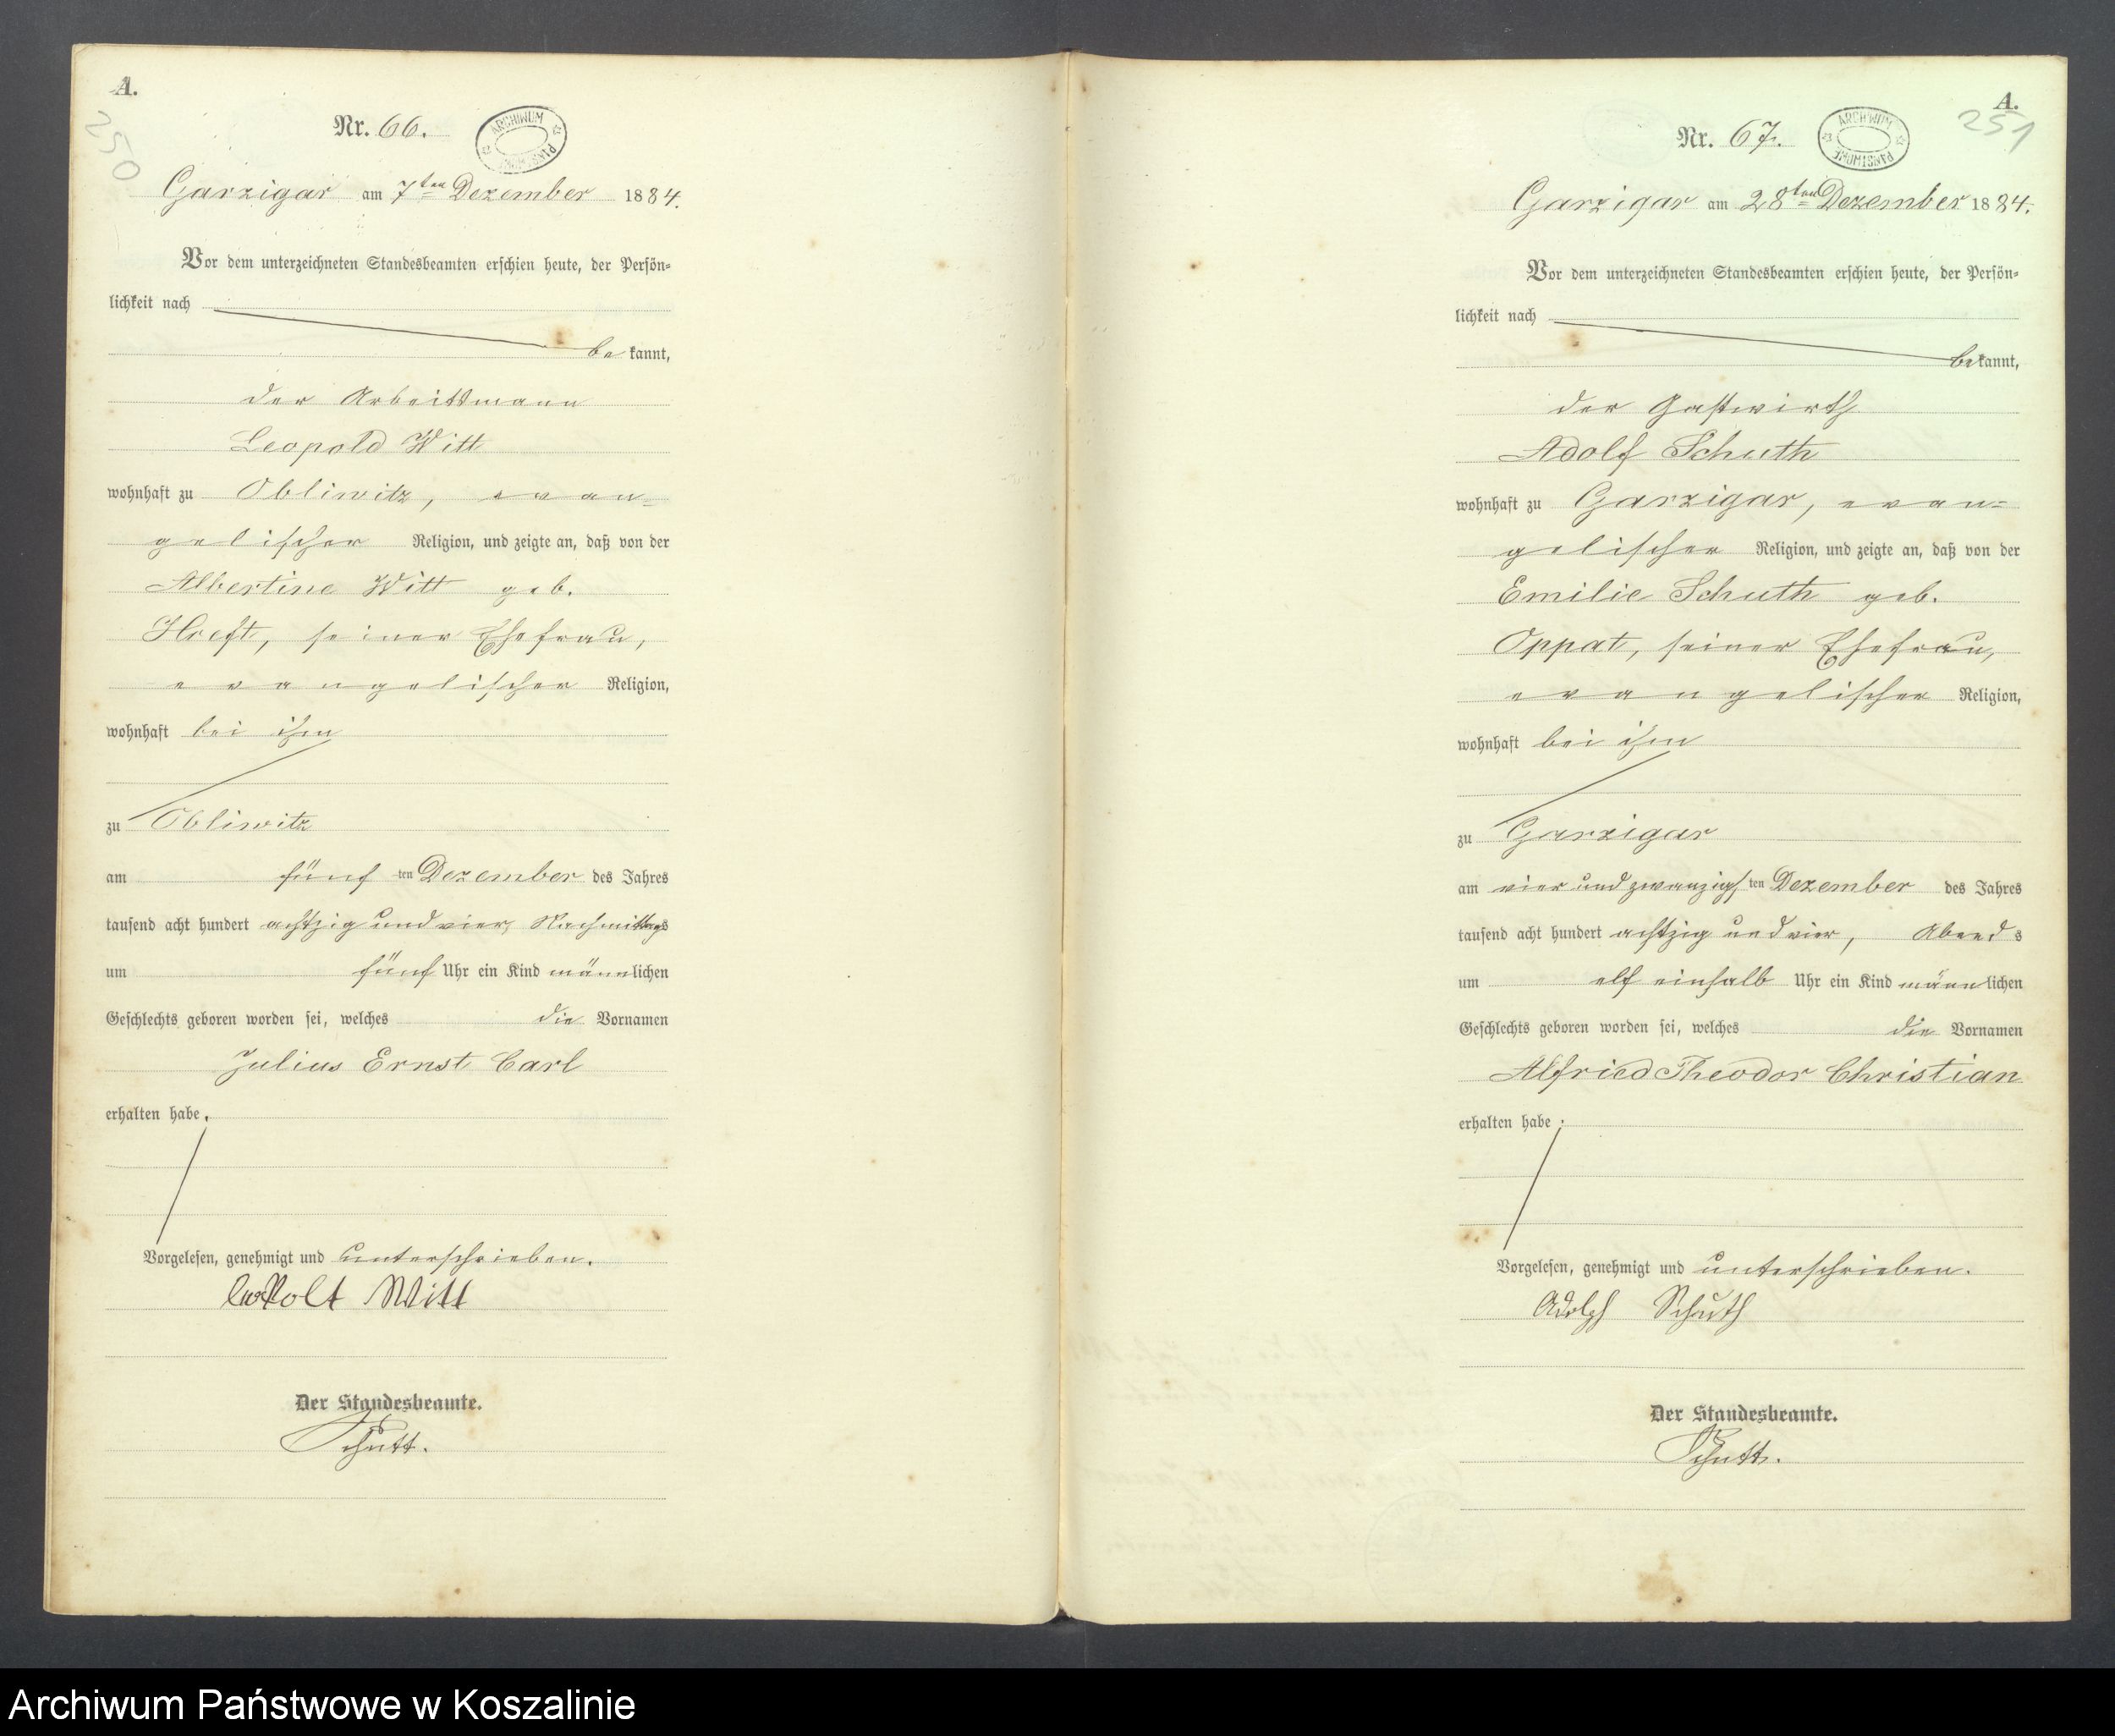 A.
250
Nr. 66.
ARCHIWUM PAŃSTWOWE
Garzigar am 7ten Dezember 1884.
Vor dem unterzeichneten Standesbeamten erschien heute, der Persön=
lichkeit nach
be kannt,
der Arbeitsmann
Leopold Witt
wohnhaft zu Obliwitz, evan=
gelischer Religion, und zeigte an, daß von der
Albertine Witt geb.
seiner Ehefrau,
evangelischer Religion,
wohnhaft bei ihm
zu Obliwitz
am fünf ten Dezember des Jahres
tausend acht hundert achtzig und vier, Nachmittags
um fünf Uhr ein Kind männlichen
Geschlechts geboren worden sei, welches die Vornamen
Julius Ernst Carl
erhalten habe.
Vorgelesen, genehmigt und unterschrieben.
Witt
Der Standesbeamte.
Schutt.
A.
251
Nr. 67.
ARCHIWUM PAŃSTWOWE
Garzigar am 28ten Dezember 1884.
Vor dem unterzeichneten Standesbeamten erschien heute, der Persön=
lichkeit nach
bekannt,
der Gastwirth
Adolf Schuth
wohnhaft zu Garzigar, evan=
gelischer Religion, und zeigte an, daß von der
Emilie Schuth geb.
Oppat, seiner Ehefrau,
evangelischer Religion,
wohnhaft bei ihm
zu Garzigar
am vier und zwanzigs ten Dezember des Jahres
tausend acht hundert achtzig und vier, Abends
um elf einhalb Uhr ein Kind männlichen
Geschlechts geboren worden sei, welches die Vornamen
Alfried Theodor Christian
erhalten habe.
Vorgelesen, genehmigt und unterschrieben.
Adolph Schuth
Der Standesbeamte.
Schutt.
Archiwum Państwowe w Koszalinie